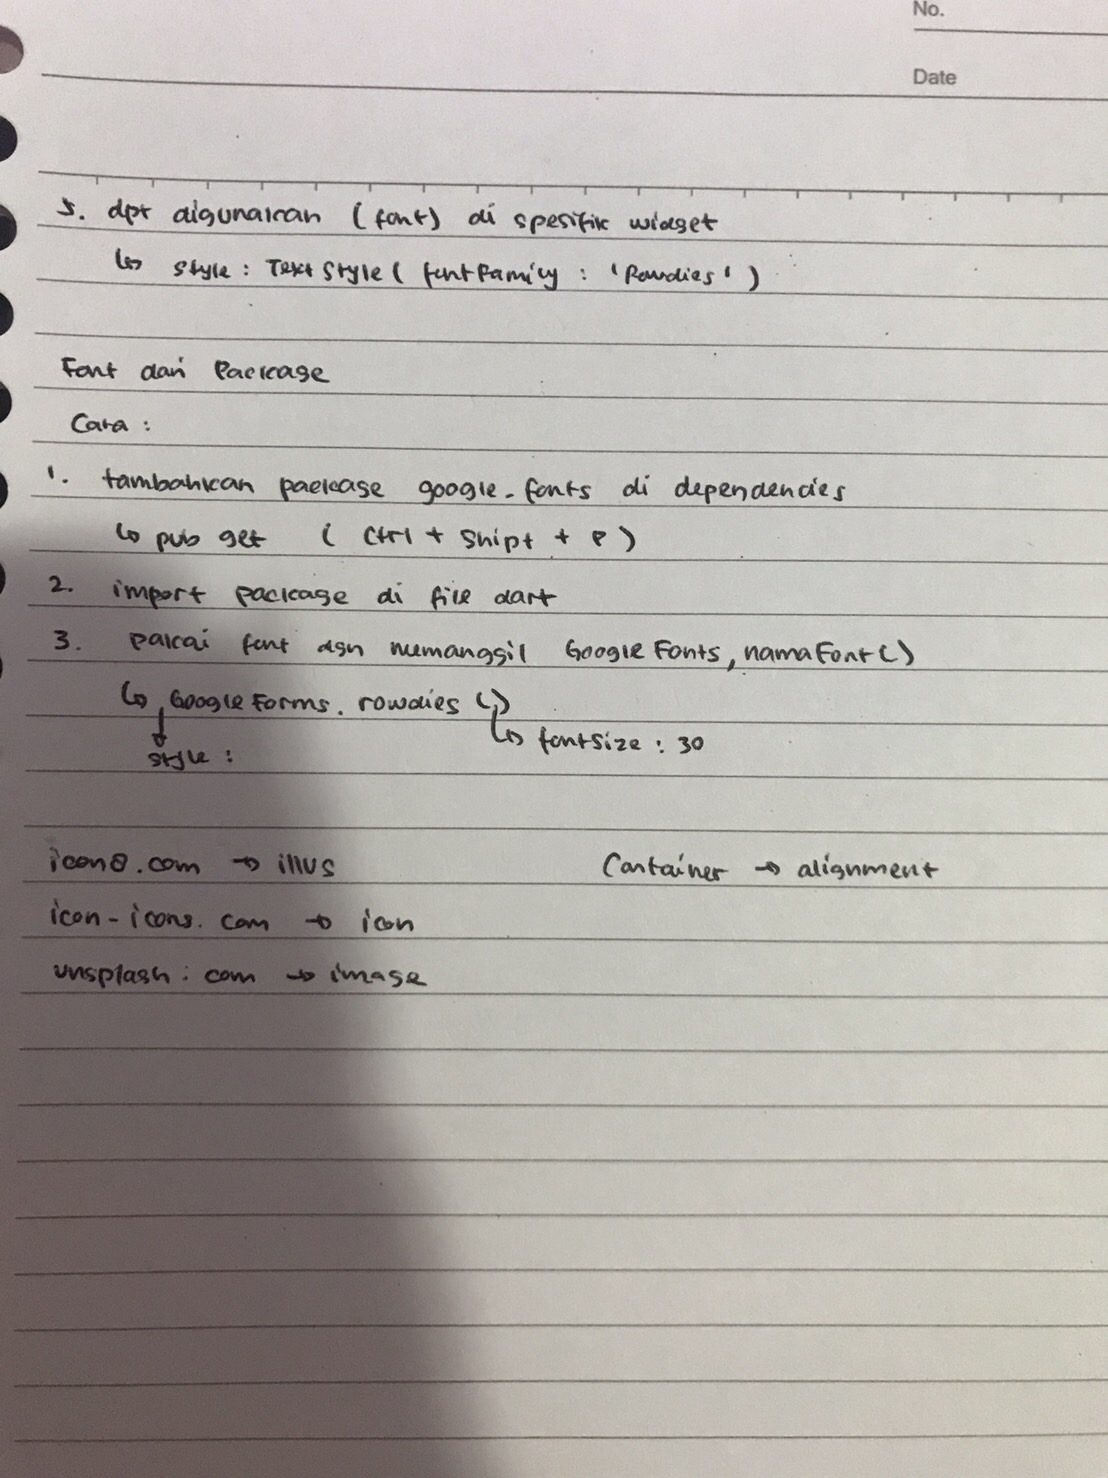 No.
Date
5. dpt digunakan (font) di spesifik widget
↳ style : TextStyle ( fontFamily : 'Rowdies' )
Font dari Package
Cara :
1. tambahkan package google_fonts di dependencies
↳ pub get ( Ctrl + Shipt + P )
2. import package di file dart
3. pakai font dgn memanggil GoogleFonts, namaFont()
↳ GoogleForms. rowdies ()
↳ fontSize : 30
style :
icon8.com → illus
Container → alignment
icon-icons.com → icon
unsplash.com → image